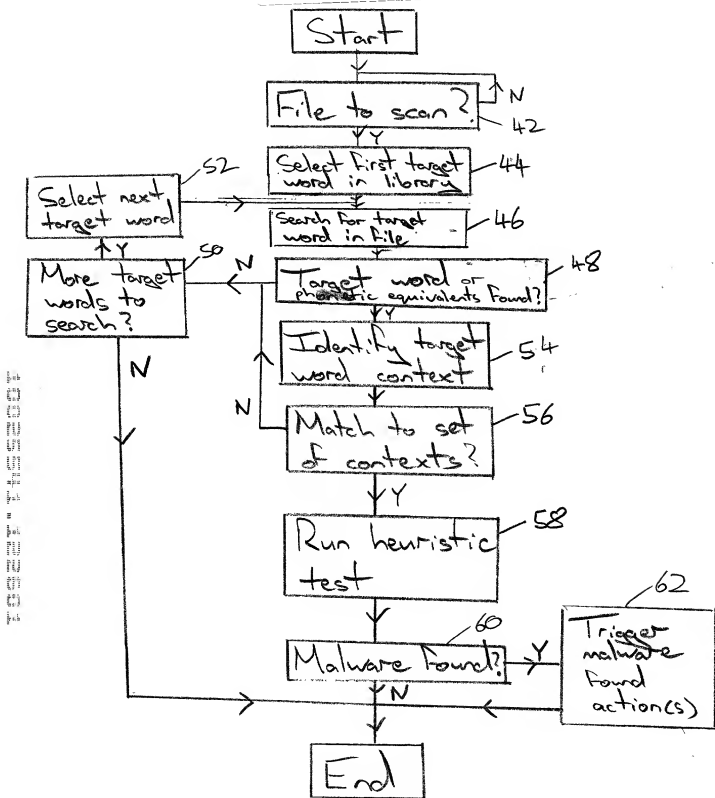 Start
File to scan?
N
42
Y
Select first target
word in library
44
52
Select next
target word
Search for target
word in file
46
Y
50
More target
words to
search?
N
Target word or
phonetic equivalents found?
48
Y
Identify target
word context
54
N
N
Match to set
of contexts?
56
Y
Run heuristic
test
58
60
Malware found?
Y
N
62
Trigger
malware
found
action(s)
End